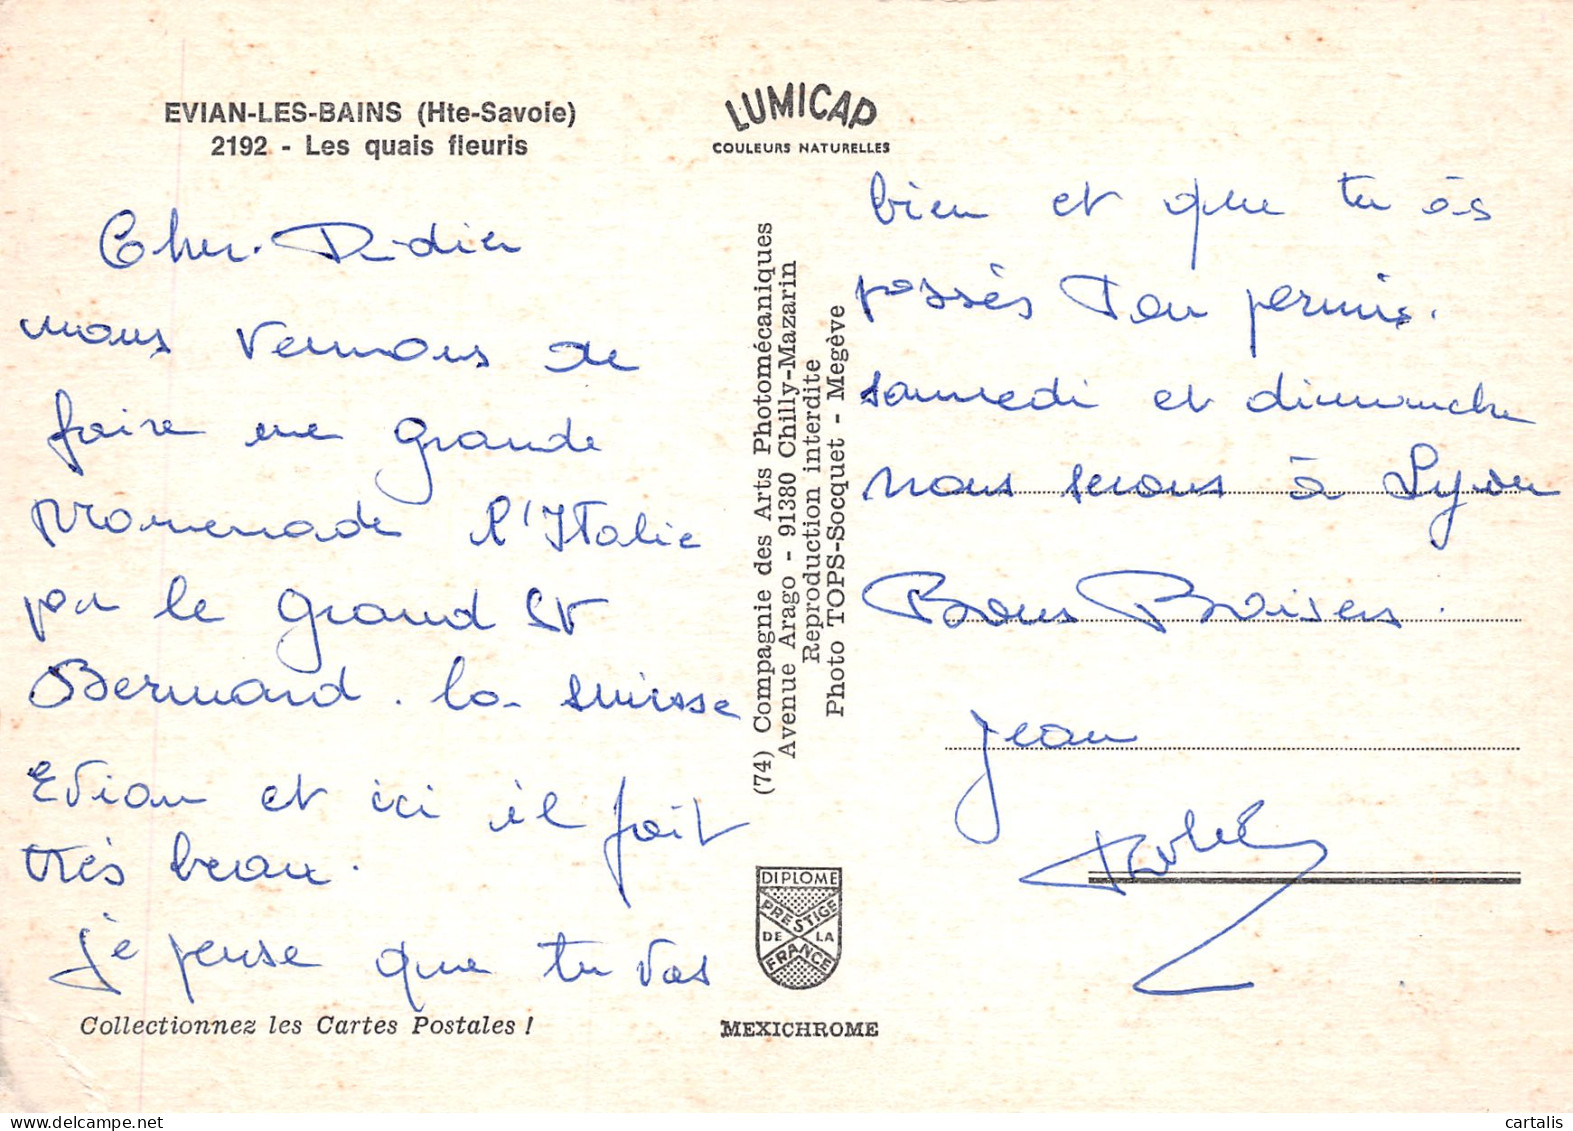 EVIAN-LES-BAINS (Hte-Savoie)
2192 - Les quais fleuris
Cher Didier
nous venons de
faire une grande
promenade l'Italie
par le grand St
Bernard. la suisse
Evian et ici il fait
très beau.
je pense que tu vas
Collectionnez les Cartes Postales !
LUMICAP
COULEURS NATURELLES
(74) Compagnie des Arts Photomécaniques
Avenue Arago - 91380 Chilly-Mazarin
Reproduction interdite
Photo TOPS-Socquet - Megève
DIPLOME
PRESTIGE
DE LA
FRANCE
MEXICHROME
bien et que tu as
passés ton permis.
samedi et dimanche
nous serons à Lyon
Bons Baisers.
Jean